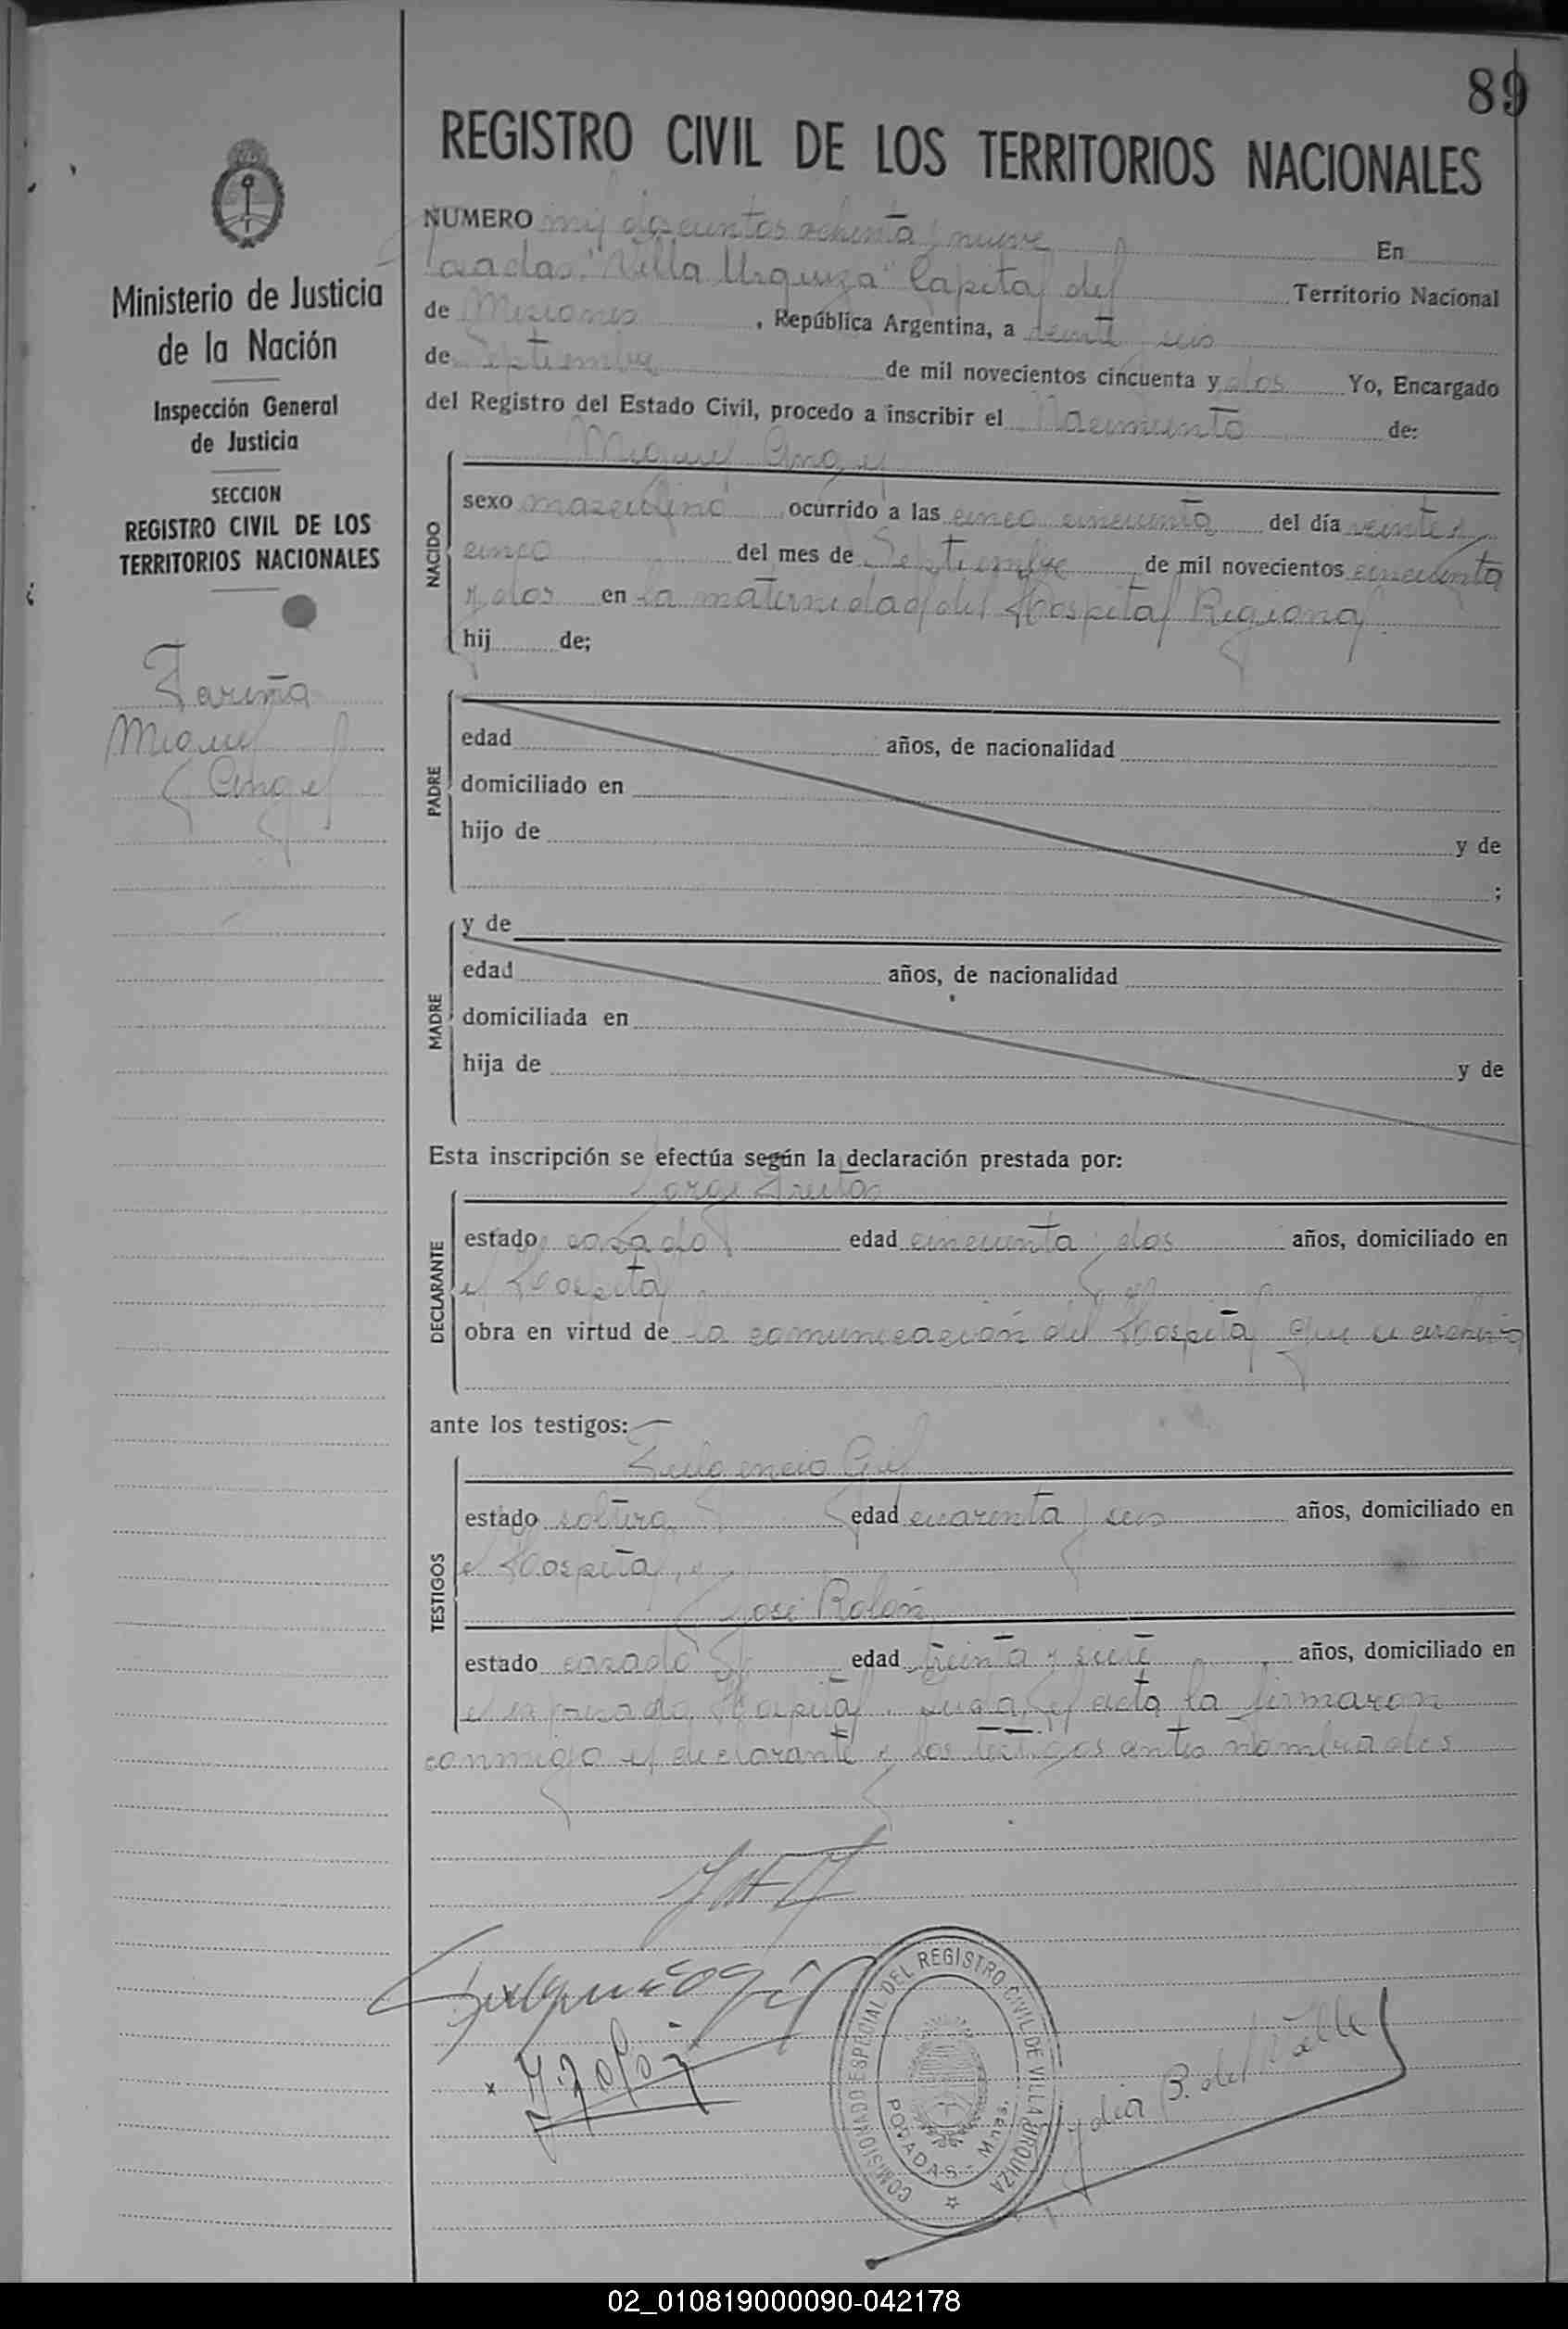 89
REGISTRO CIVIL DE LOS TERRITORIOS NACIONALES
NUMERO mil doscientos ochenta y nueve En
Posadas "Villa Urquiza" Capital del Territorio Nacional
de Misiones, República Argentina, a veinte y seis
de Septiembre de mil novecientos cincuenta y dos Yo, Encargado
del Registro del Estado Civil, procedo a inscribir el Nacimiento de:
Miguel Angel
NACIDO
sexo masculino ocurrido a las cinco cincuenta del día veinte y
cinco del mes de Septiembre de mil novecientos cincuenta
y dos en la maternidad del Hospital Regional.
hij de;
PADRE
edad años, de nacionalidad
domiciliado en
hijo de y de
;
MADRE
y de
edad años, de nacionalidad
domiciliada en
hija de y de
Esta inscripción se efectúa según la declaración prestada por:
Jorge Freitas
DECLARANTE
estado casado edad cincuenta y dos años, domiciliado en
el Hospital
obra en virtud de la comunicación del Hospital que se archiva
ante los testigos:
Fulgencio Gil
TESTIGOS
estado soltero edad cuarenta y seis años, domiciliado en
el Hospital, y
José Rolón
estado casado edad treinta y siete años, domiciliado en
el expresado Hospital. Leida el acta la firmaron
conmigo el declarante y los testigos antes nombrados
Fulgencio Gil
J. Rolon
COMISIONADO ESPECIAL DEL REGISTRO CIVIL DE VILLA URQUIZA
POSADAS - Mnes.
Lydia B. del Valle
Ministerio de Justicia
de la Nación
Inspección General
de Justicia
SECCION
REGISTRO CIVIL DE LOS
TERRITORIOS NACIONALES
Fariña
Miguel
Angel
02_010819000090-042178